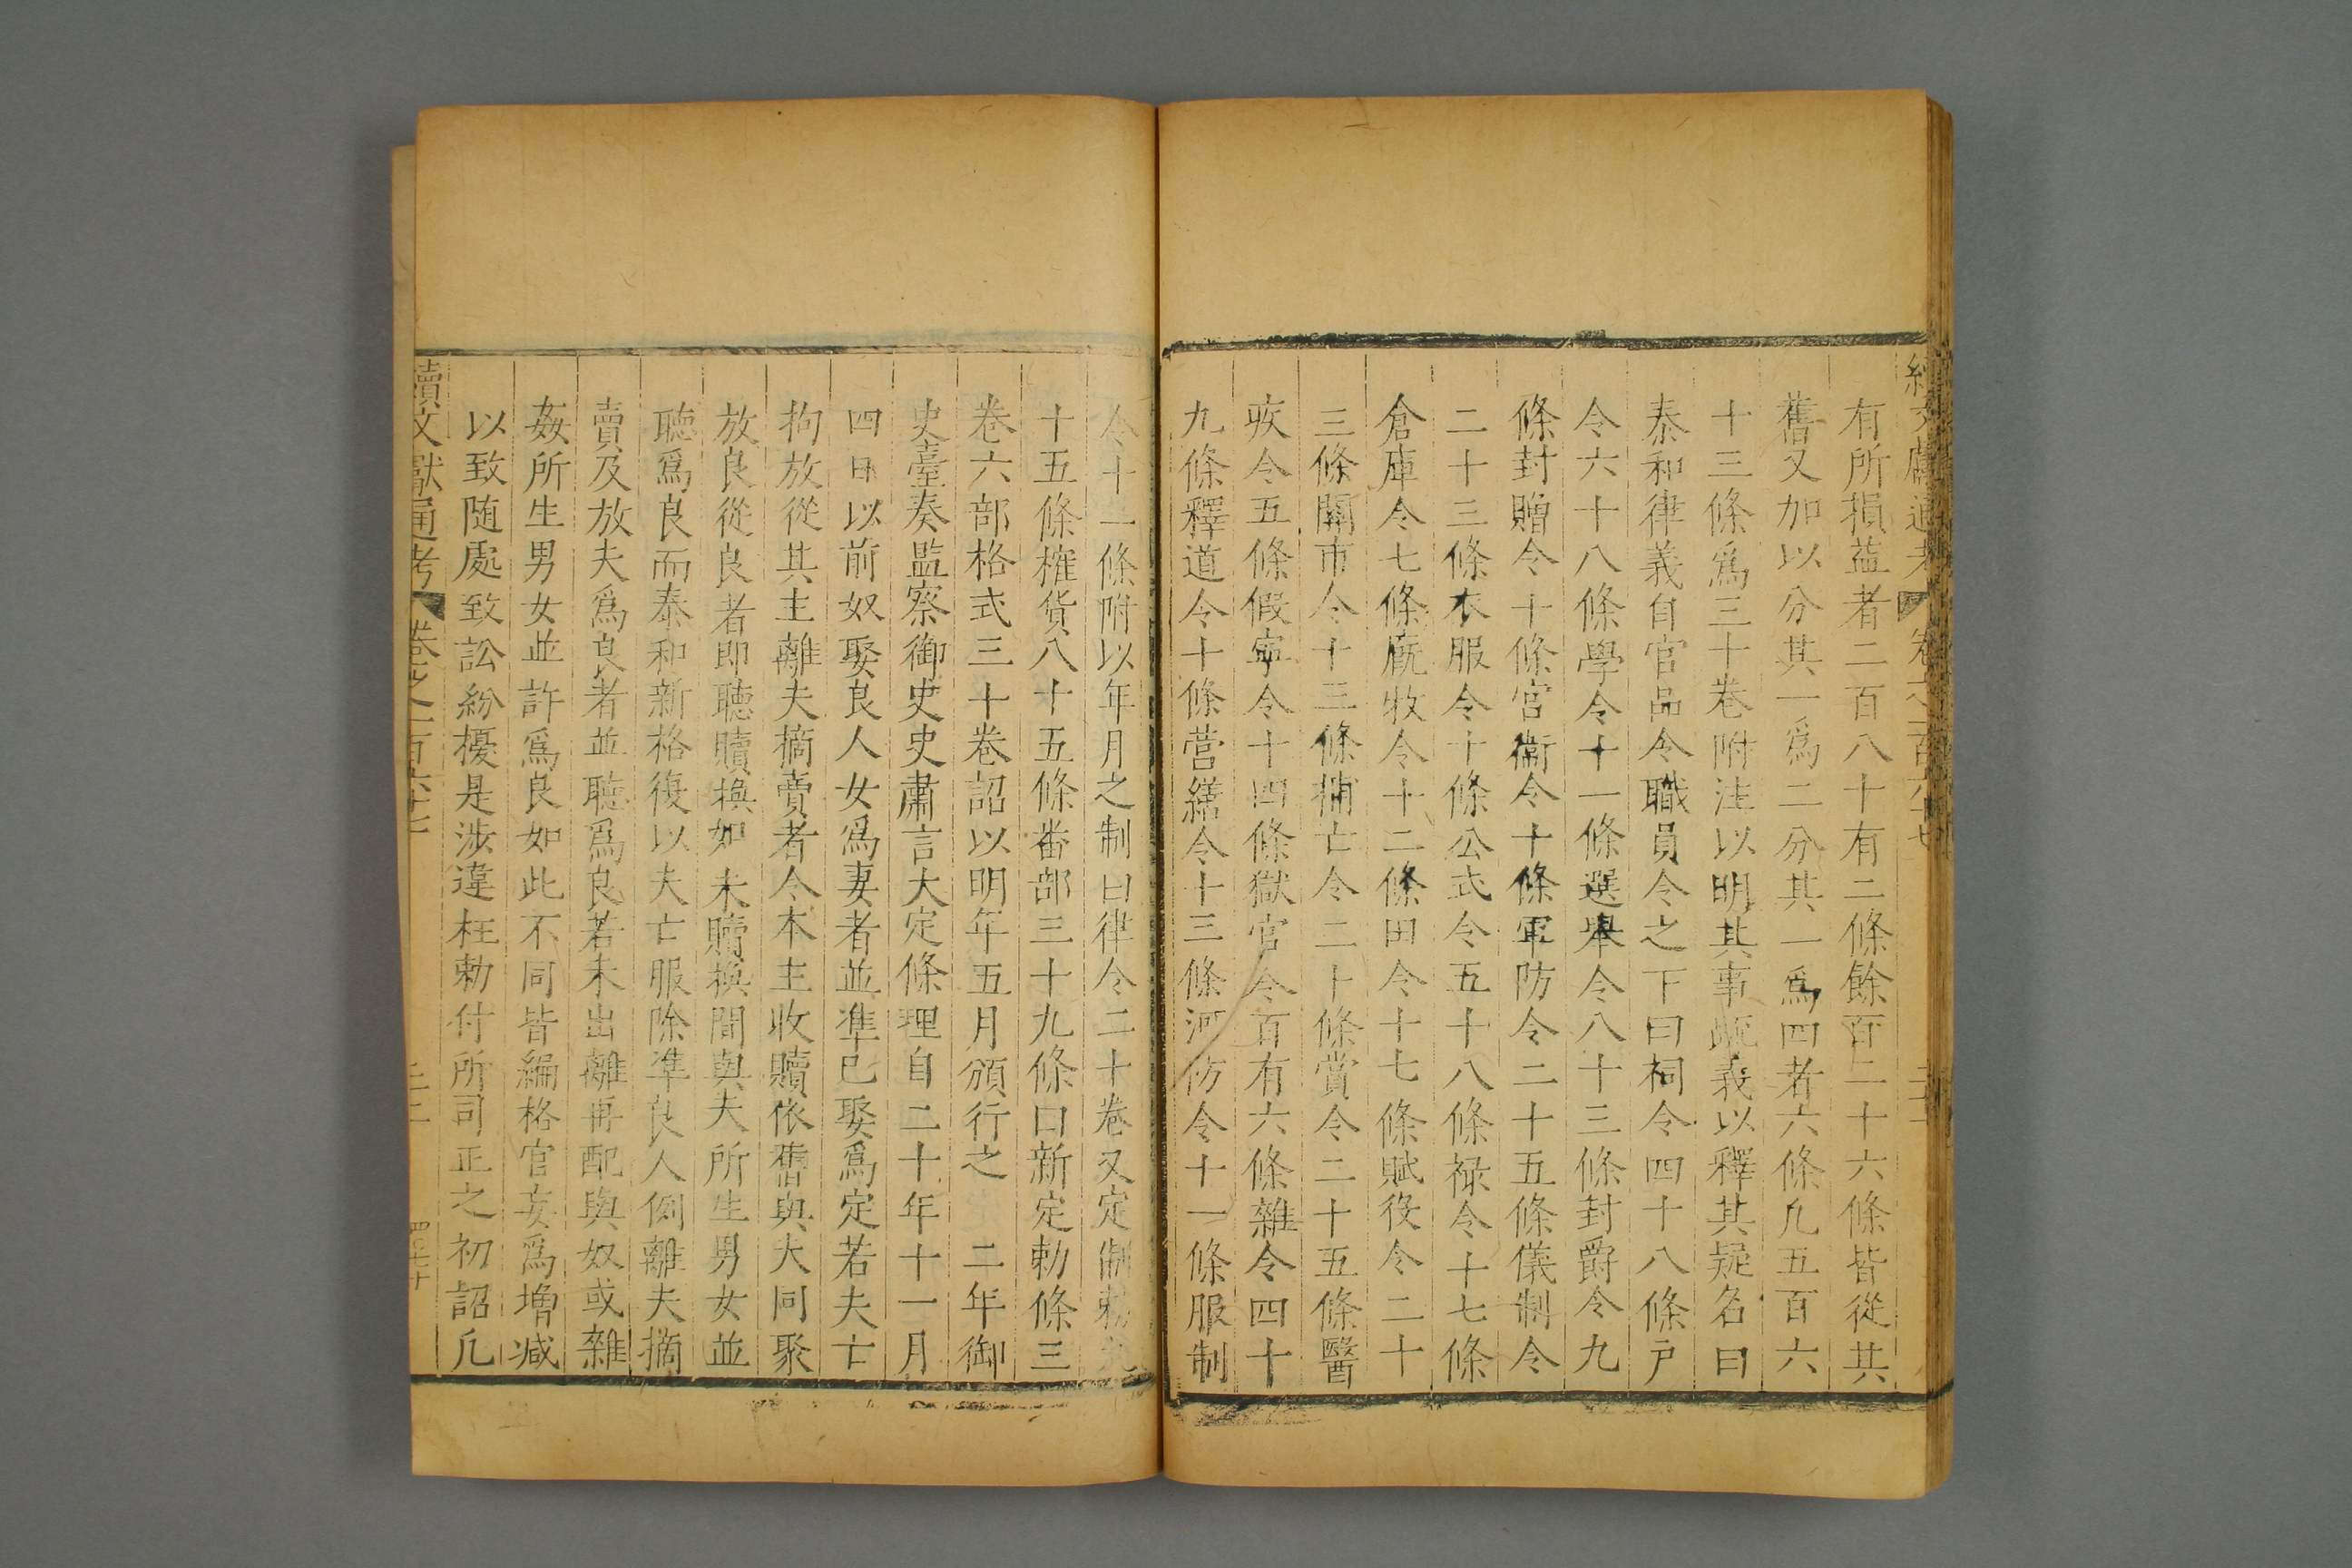 續文獻通考 卷之一百六十七
有所損益者二百八十有二條餘百二十六條皆從其
舊又加以分其一爲二分其一爲四者六條凡五百六
十三條爲三十卷附注以明其事疏義以釋其疑名曰
泰和律義自官品令職員令之下曰祠令四十八條戸
令六十八條學令十一條選舉令八十三條封爵令九
條封贈令十條宮衛令十條軍防令二十五條儀制令
二十三條衣服令十條公式令五十八條禄令十七條
倉庫令七條廐牧令十二條田令十七條賦役令二十
三條關市令十三條捕亡令二十條賞令二十五條醫
疾令五條假寧令十四條獄官令百有六條雜令四十
九條釋道令十條營繕令十三條河防令十一條服制
令十一條附以年月之制曰律令二十卷又定制勅九
十五條榷貨八十五條蕃部三十九條口新定勅條三
卷六部格式三十卷詔以明年五月頒行之 二年御
史臺奏監察御史史肅言大定條理自二十年十一月
四日以前奴娶良人女爲妻者並準已娶爲定若夫亡
拘放從其主離夫摘賣者令本主收贖依舊與大同聚
放良從良者即聽贖換如未贖換間與夫所生男女並
聽爲良而泰和新格復以夫亡服除準良人例離夫摘
賣及放夫爲良者並聽爲良若未出離再配與奴或雜
姦所生男女並許爲良如此不同皆編格官妄爲增减
以致随處致訟紛擾是涉違枉勅付所司正之初詔凡
續文獻通考 卷之一百六十七